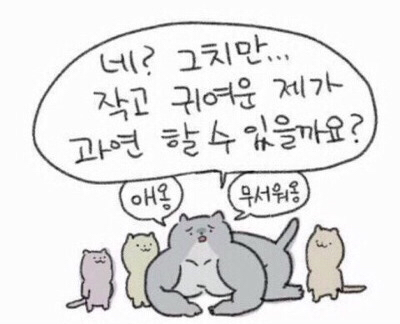 네? 그치만...
작고 귀여운 제가
과연 할 수 있을까요?
애옹
무서워옹